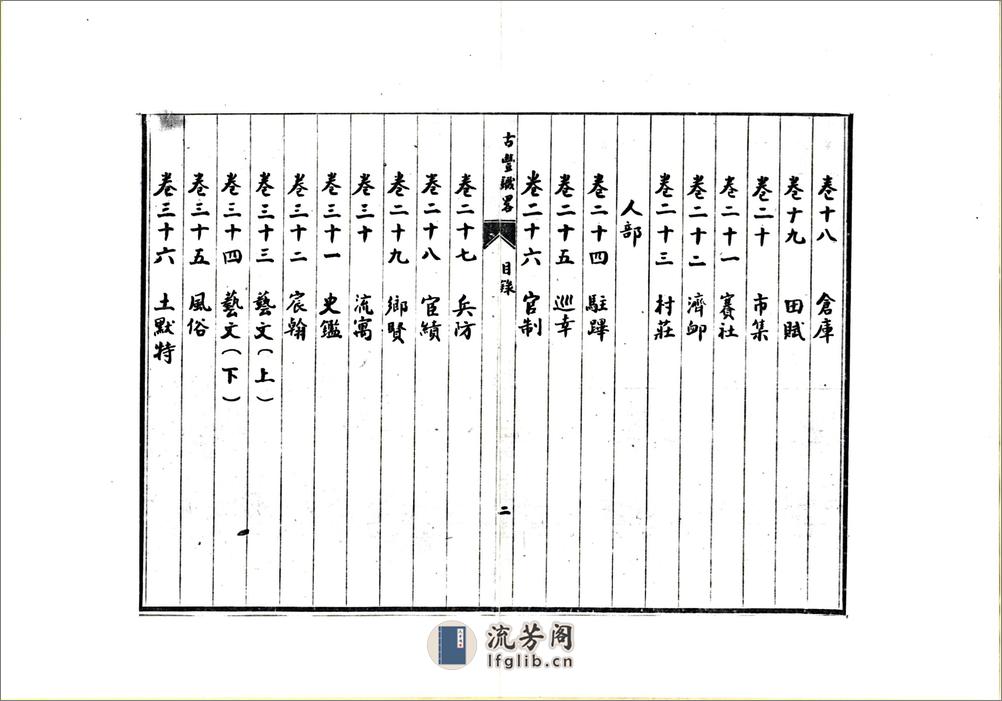 卷十八 倉庫
卷十九 田賦
卷二十 市集
卷二十一 賽社
卷二十二 濟卹
卷二十三 村莊
人部
卷二十四 駐蹕
卷二十五 巡幸
卷二十六 官制
古豐識畧 目錄 二
卷二十七 兵防
卷二十八 宦績
卷二十九 鄉賢
卷三十 流寓
卷三十一 史鑑
卷三十二 宸翰
卷三十三 藝文(上)
卷三十四 藝文(下)
卷三十五 風俗
卷三十六 土默特
流芳阁
lfglib.cn